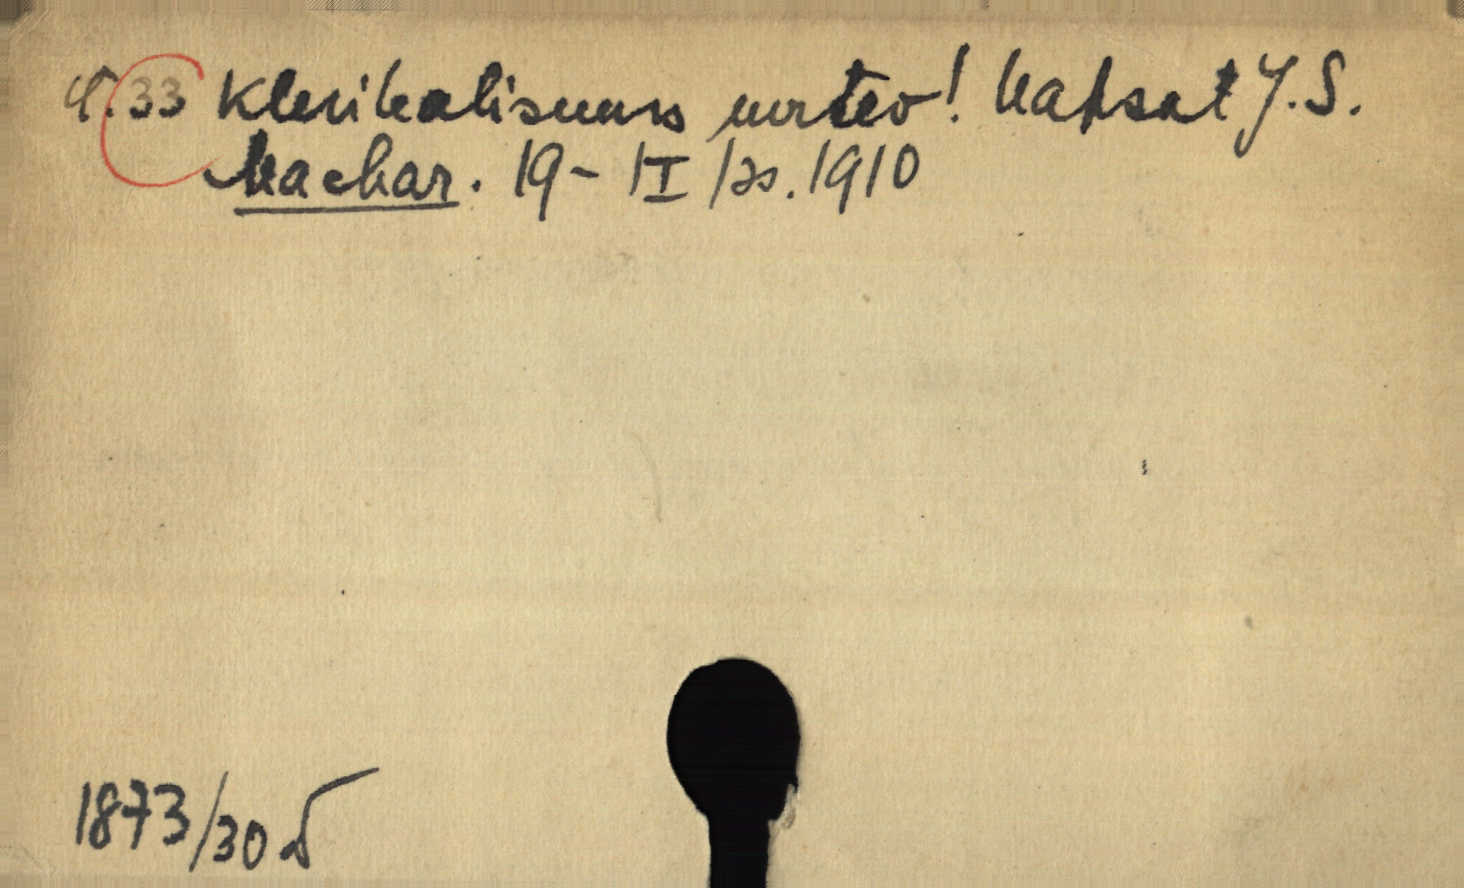 4.33 Klerikalismus mrtev! Napsat J. S.
Machar. 19-II/25.1910
1873/30